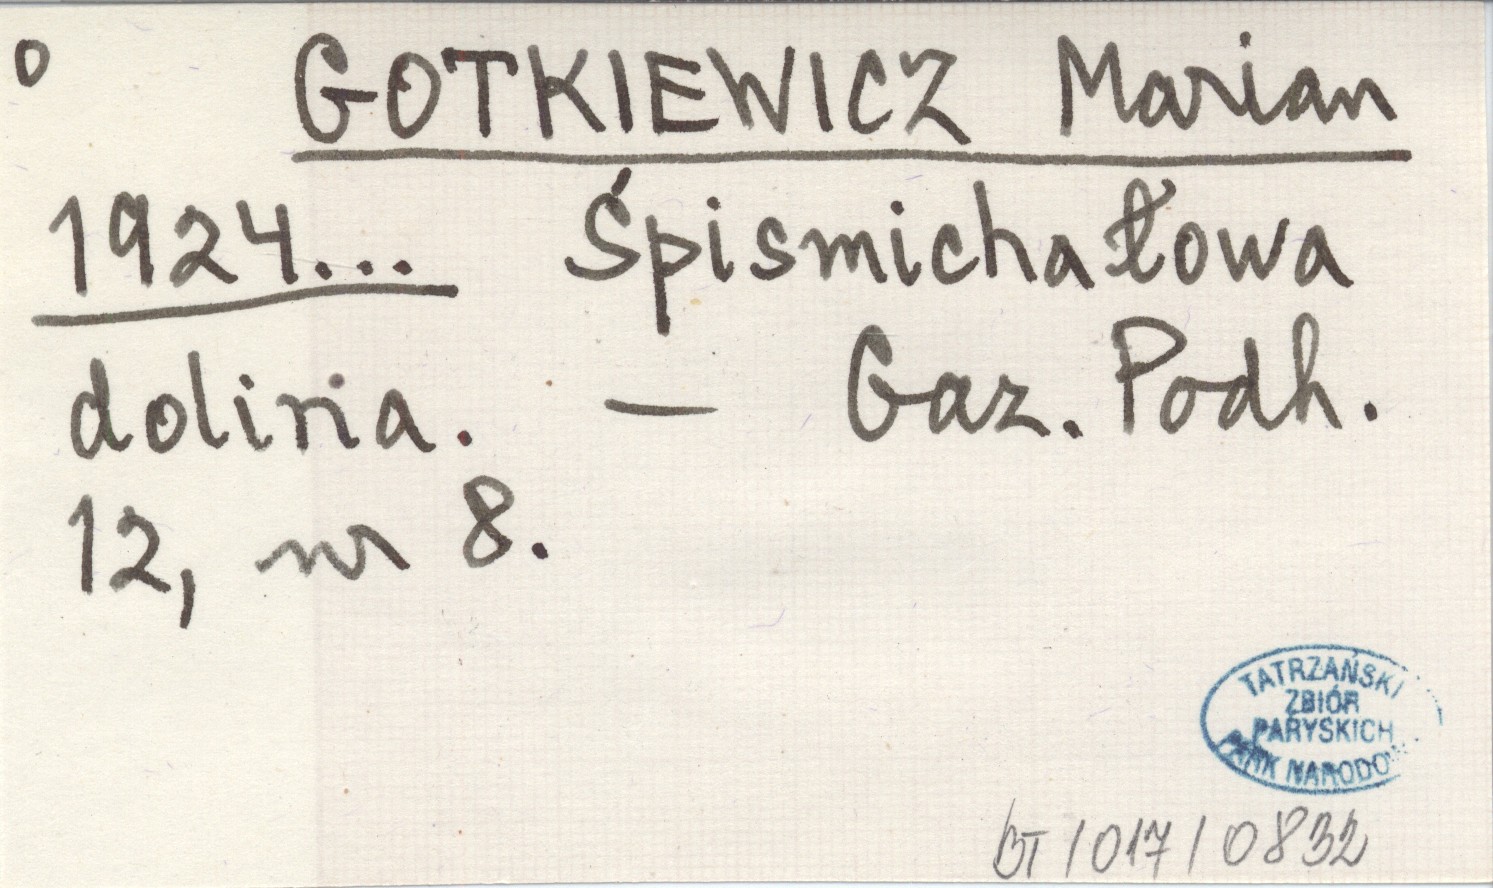 o GOTKIEWICZ Marian
1924... Śpismichałowa
dolina. — Gaz. Podh.
12, nr 8.
TATRZAŃSKI
ZBIÓR
PARYSKICH
PARK NARODOW
BT/017/0832